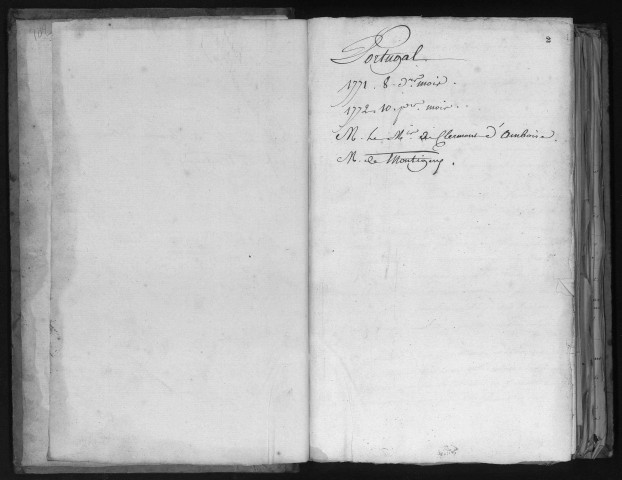 2
Portugal
1771. 8. drs mois.
1772. 10. prs mois.
M. Le Mis de Clermont d'Amboise.
M. de Montigny.